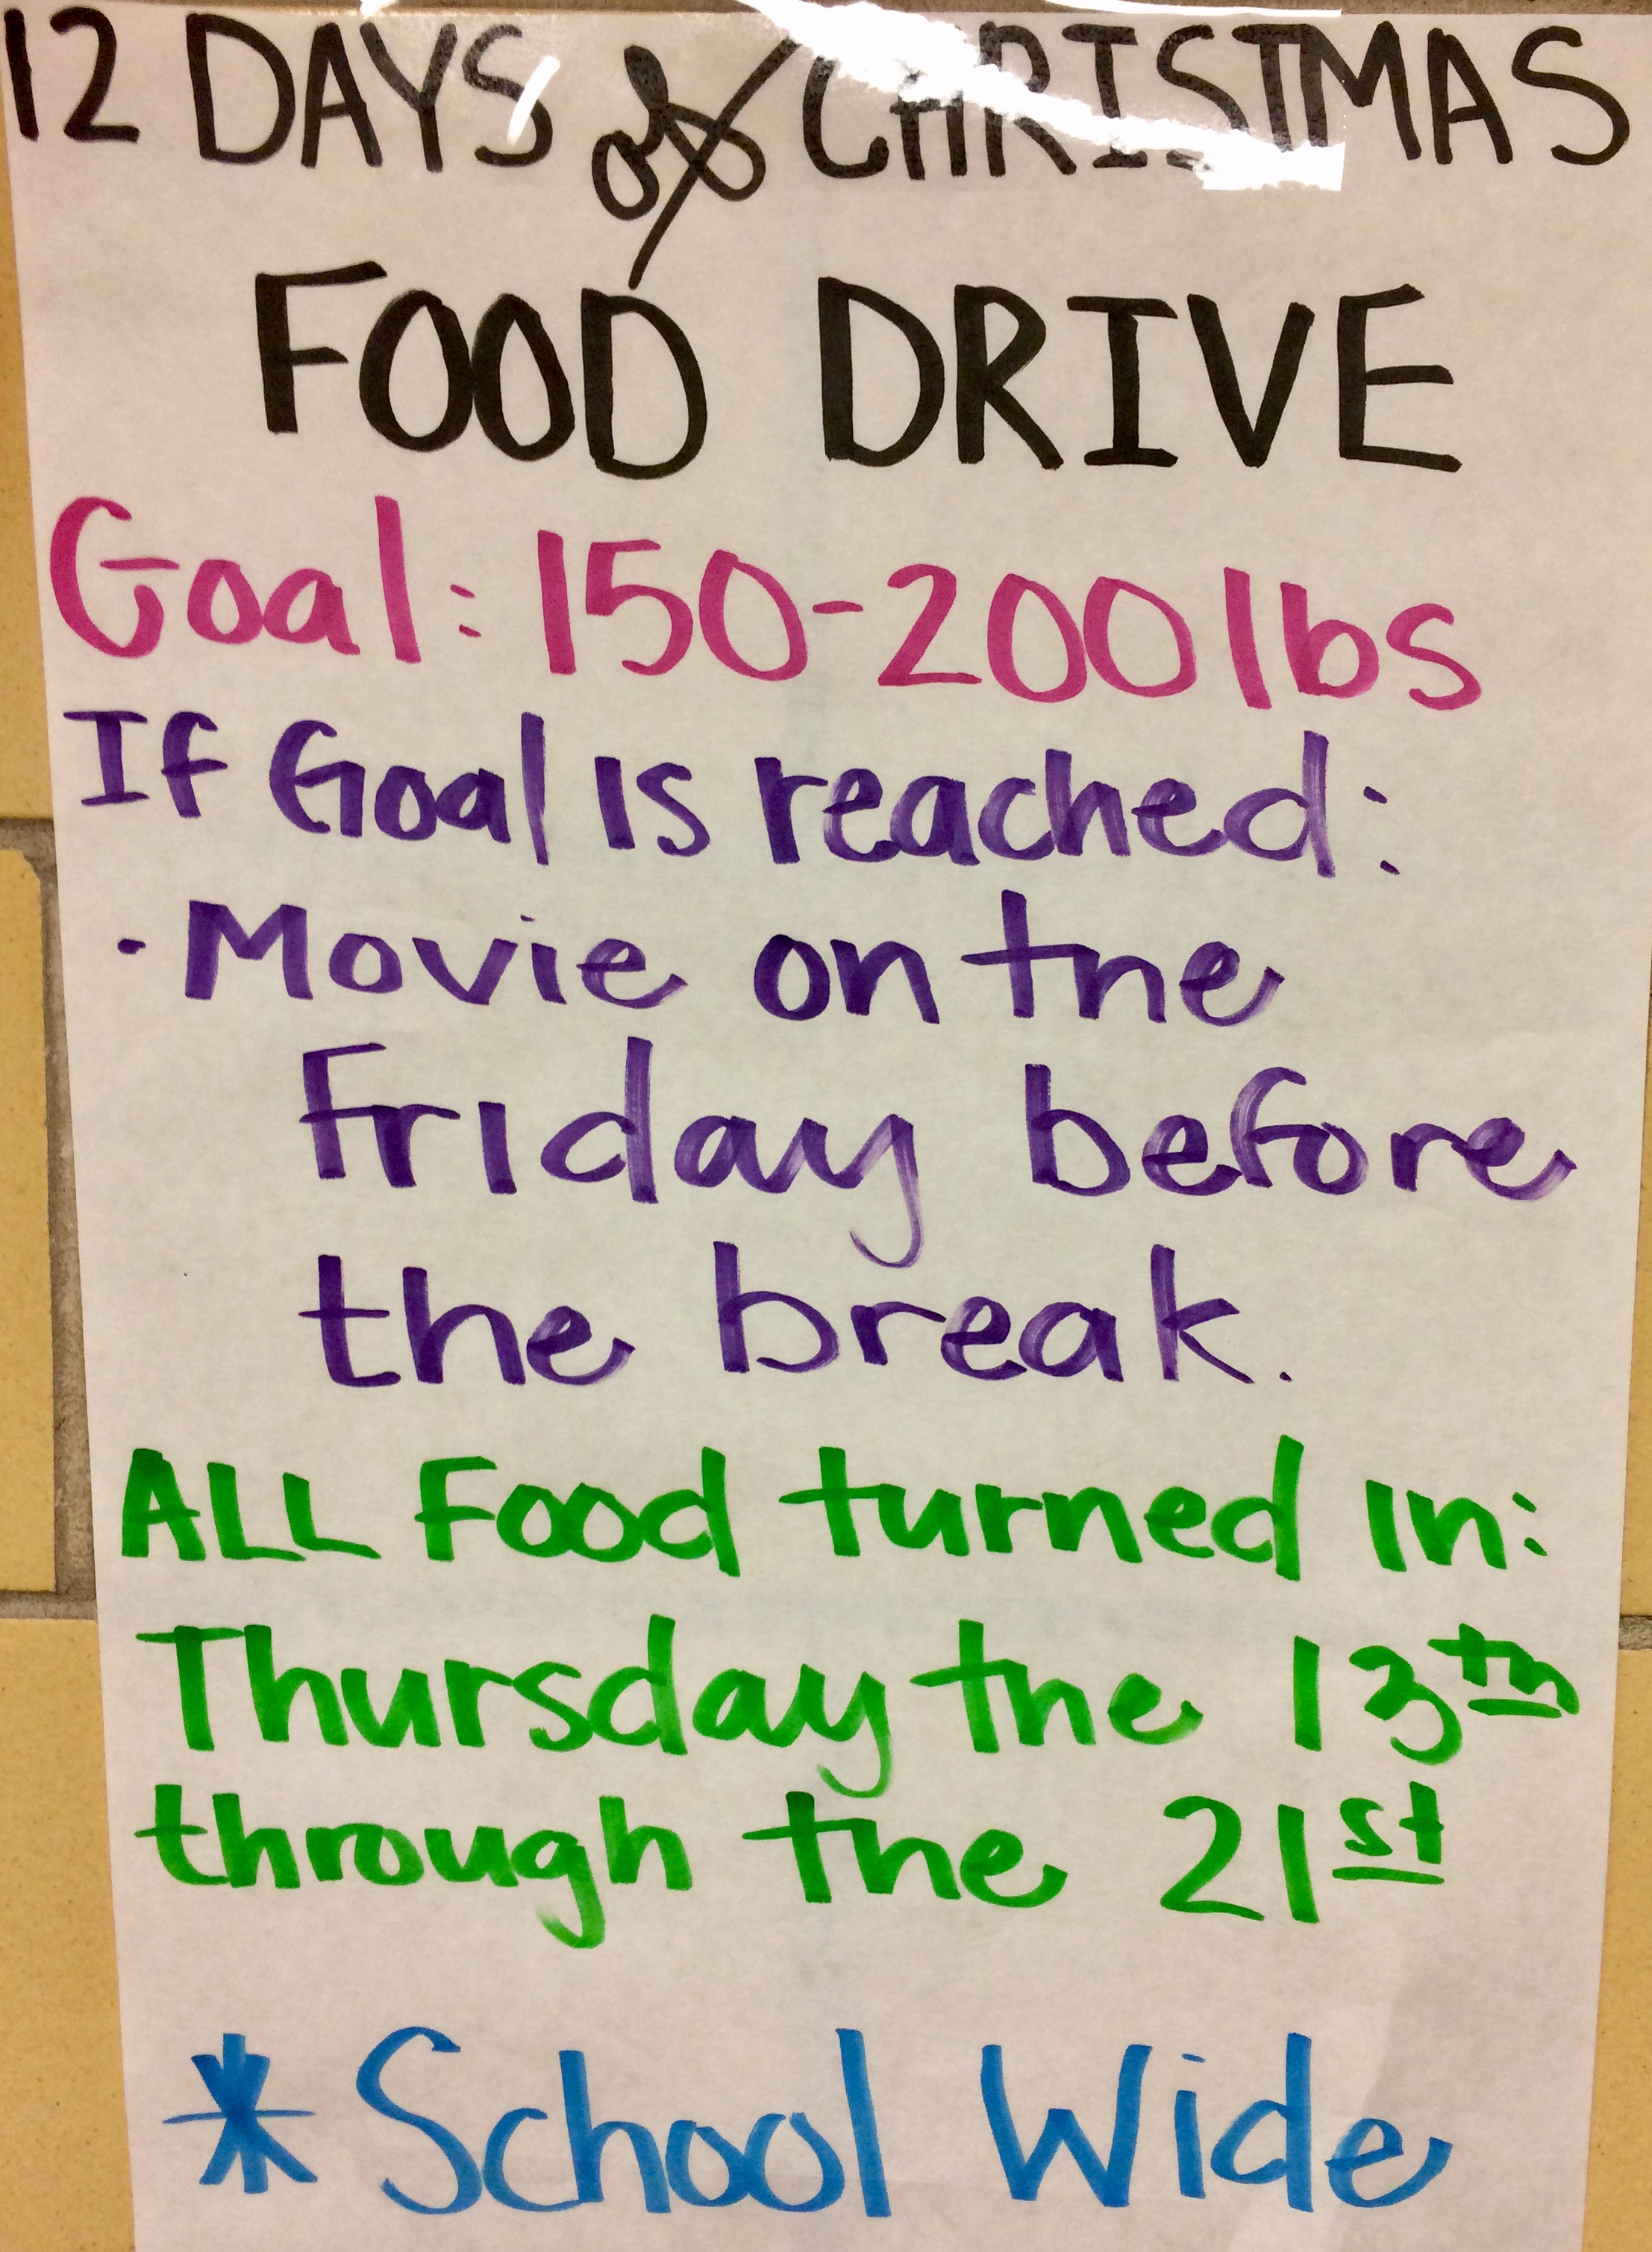 12 DAYS of CHRISTMAS
FOOD DRIVE
Goal: 150-200 lbs
If Goal is reached:
· Movie on the
Friday before
the break.
ALL Food turned in:
Thursday the 13th
through the 21st
* School Wide